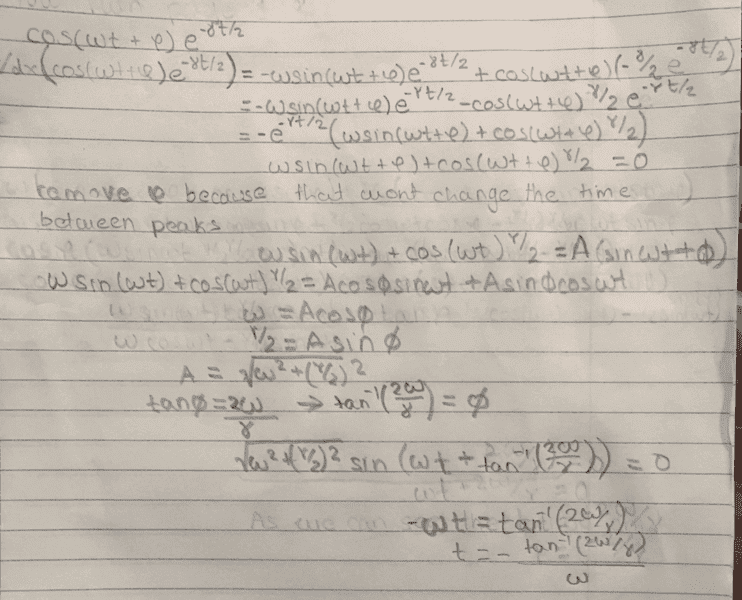 cos(ωt + φ) e^-γt/2
d/dx(cos(ωt+φ)e^-γt/2) = -ωsin(ωt+φ)e^-γt/2 + cos(ωt+φ)(-γ/2 e^-γt/2)
= -ωsin(ωt+φ)e^-γt/2 - cos(ωt+φ) γ/2 e^-γt/2
= -e^-γt/2 (ωsin(ωt+φ) + cos(ωt+φ) γ/2)
ωsin(ωt+φ) + cos(ωt+φ) γ/2 = 0
remove φ because that wont change the time
between peaks
ωsin(ωt) + cos(ωt) γ/2 = A(sinωt+ϕ)
ωsin(ωt) + cos(ωt) γ/2 = Acosϕsinωt + Asinϕcosωt
ω = Acosϕ
γ/2 = Asinϕ
A = √ω²+(γ/2)²
tanϕ = 2ω/γ → tan⁻¹(2ω/γ) = ϕ
√ω²+(γ/2)² sin(ωt + tan⁻¹(2ω/γ)) = 0
-ωt = tan⁻¹(2ω/γ)
t = - tan⁻¹(2ω/γ)/ω